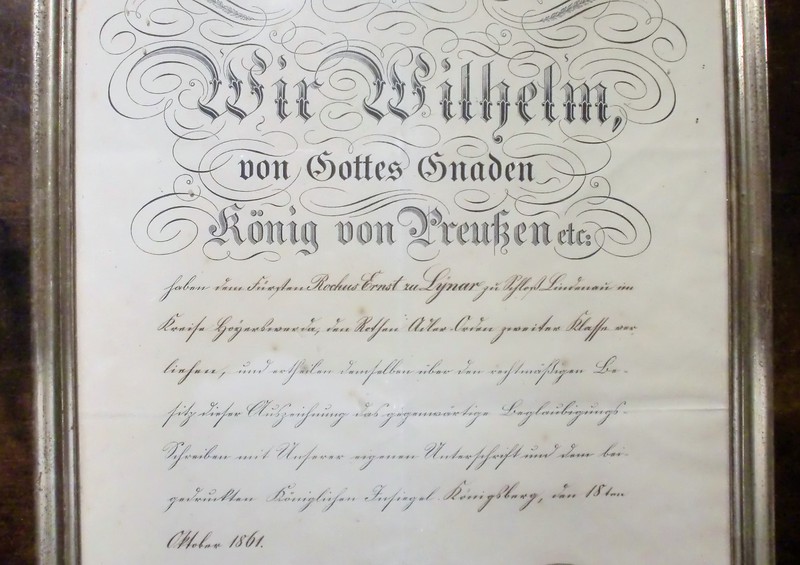 Wir Wilhelm,
von Gottes Gnaden
König von Preußen etc:
haben dem Fürsten Rochus Ernst zu Lÿnar zu Schloß Lindenau im
Kreise Hoyerswerda, den Rothen Adler-Orden zweiter Klasse ver-
liehen, und ertheilen demselben über den rechtmäßigen Be-
sitz dieser Auszeichnung das gegenwärtige Beglaubigungs-
Schreiben mit Unserer eigenen Unterschrift und dem bei-
gedruckten Königlichen Insiegel. Königsberg, den 18ten
Oktober 1861.